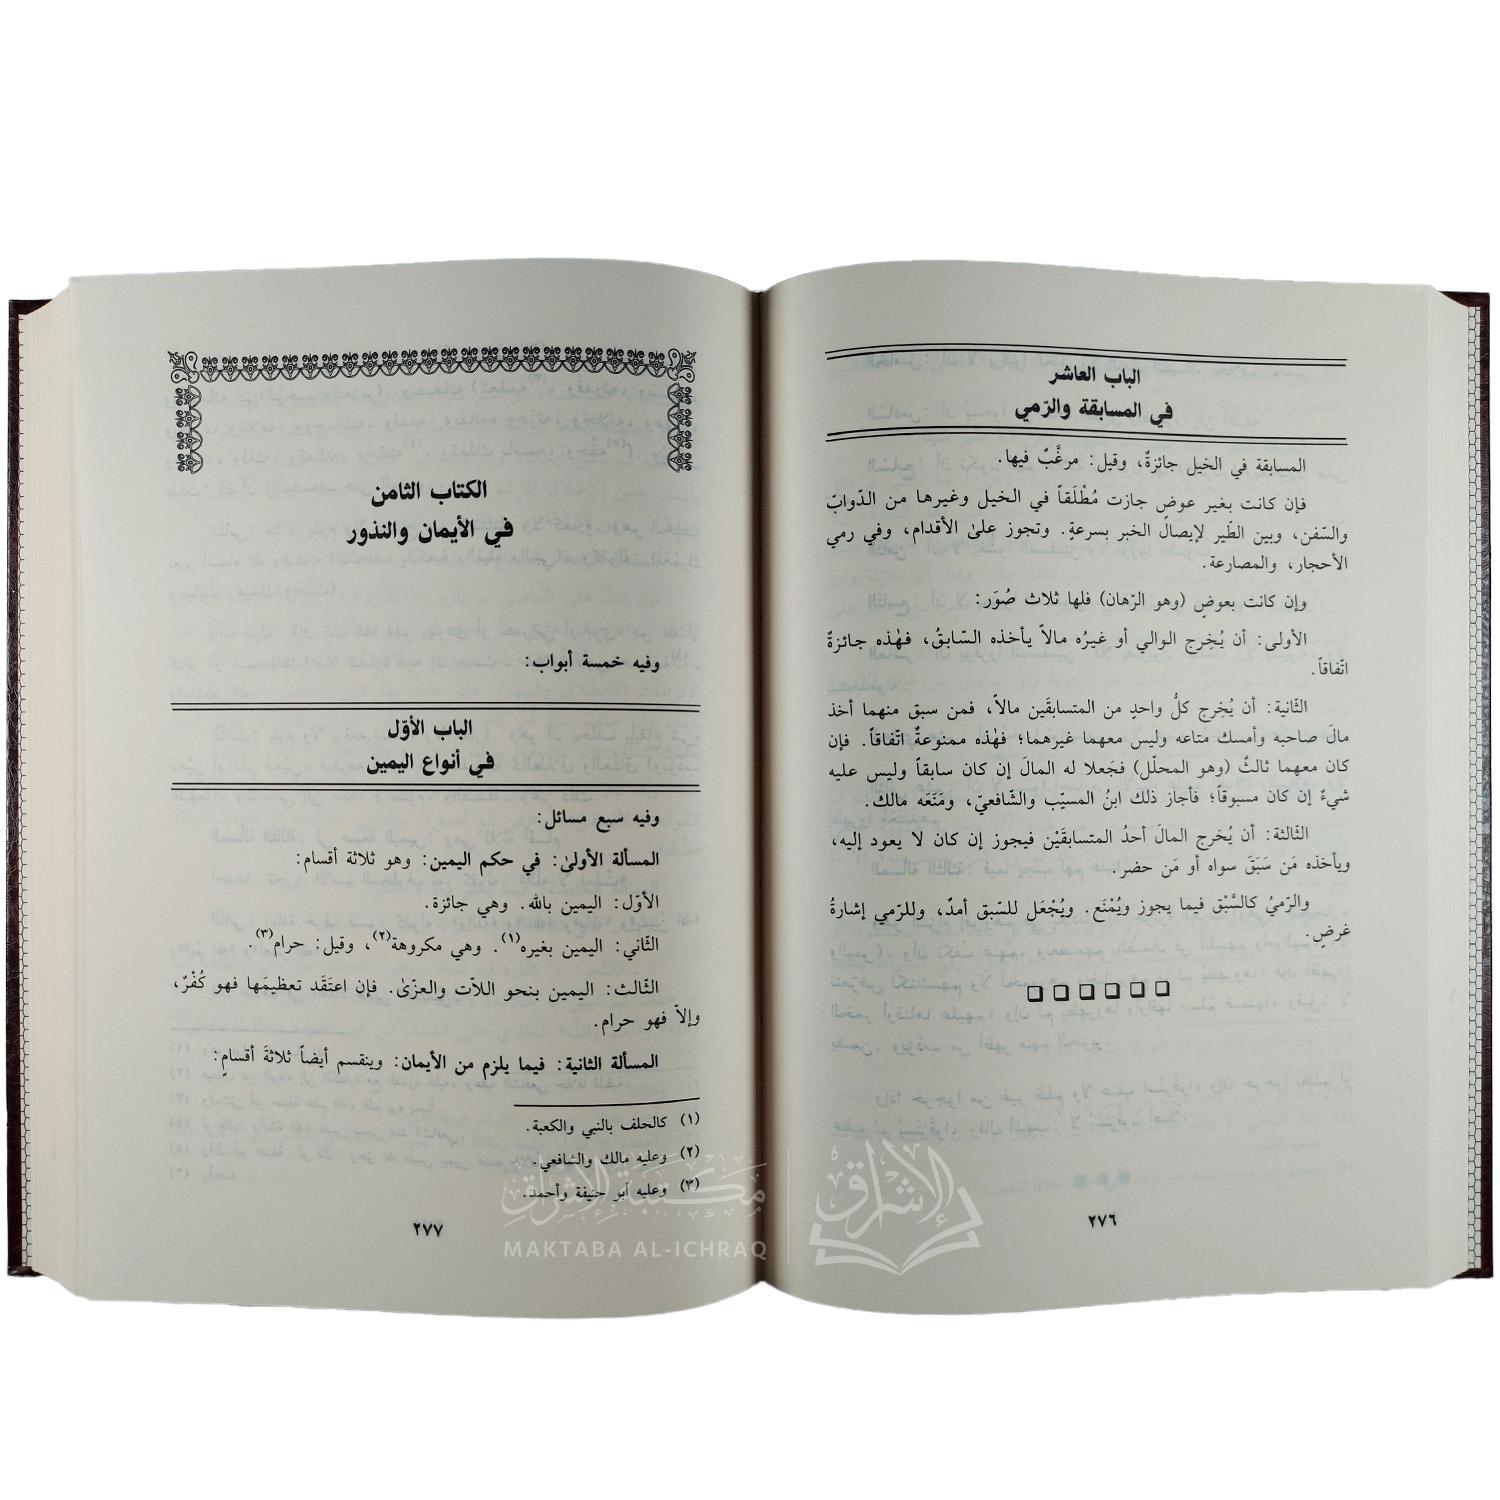 الباب العاشر
في المسابقة والرّمي
المسابقة في الخيل جائزةٌ، وقيل: مرغَّبٌ فيها.
فإن كانت بغير عوضٍ جازت مُطْلَقاً في الخيل وغيرها من الدّوابّ
والسّفن، وبين الطّير لإيصال الخبر بسرعةٍ. وتجوز علىٰ الأقدام، وفي رمي
الأحجار، والمصارعة.
وإن كانت بعوضٍ (وهو الرّهان) فلها ثلاث صُوَر:
الأولى: أن يُخرِج الوالي أو غيرُه مالاً يأخذه السّابقُ، فهٰذه جائزةٌ
اتّفاقاً.
الثّانية: أن يُخرِج كلُّ واحدٍ من المتسابقَين مالاً، فمن سبق منهما أخذ
مالَ صاحبه وأمسك متاعه وليس معهما غيرهما؛ فهٰذه ممنوعةٌ اتّفاقاً. فإن
كان معهما ثالثٌ (وهو المحلّل) فجَعلا له المالَ إن كان سابقاً وليس عليه
شيءٌ إن كان مسبوقاً؛ فأجاز ذلك ابنُ المسيّب والشّافعيّ، ومَنَعَه مالك.
الثّالثة: أن يُخرج المالَ أحدُ المتسابقَيْن فيجوز إن كان لا يعود إليه،
ويأخذه مَن سَبَقَ سواه أو مَن حضر.
والرّميُ كالسَّبْق فيما يجوز ويُمْنَع. ويُجْعَل للسّبق أمدٌ، وللرّمي إشارةُ
غرضٍ.
٢٧٦
الكتاب الثامن
في الأيمان والنذور
وفيه خمسة أبواب:
الباب الأوّل
في أنواع اليمين
وفيه سبع مسائل:
المسألة الأولىٰ: في حكم اليمين: وهو ثلاثة أقسام:
الأوّل: اليمين بالله. وهي جائزة.
الثّاني: اليمين بغيره(١). وهي مكروهة(٢)، وقيل: حرام(٣).
الثّالث: اليمين بنحو اللاّت والعزّىٰ. فإن اعتَقَد تعظيمَها فهو كُفْرٌ،
وإلاّ فهو حرام.
المسألة الثانية: فيما يلزم من الأيمان: وينقسم أيضاً ثلاثةَ أقسامٍ:
(١) كالحلف بالنبي والكعبة.
(٢) وعليه مالك والشافعي.
(٣) وعليه أبو حنيفة وأحمد.
٢٧٧
مكتبة الإشراق
MAKTABA AL-ICHRAQ
الإشراق